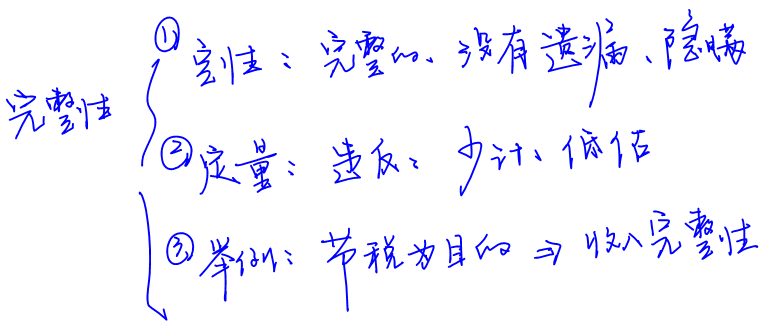 ①定性：完整的、没有遗漏、隐瞒
完整性
②定量：违反：少计、低估
③举例：节税为目的⇒收入完整性